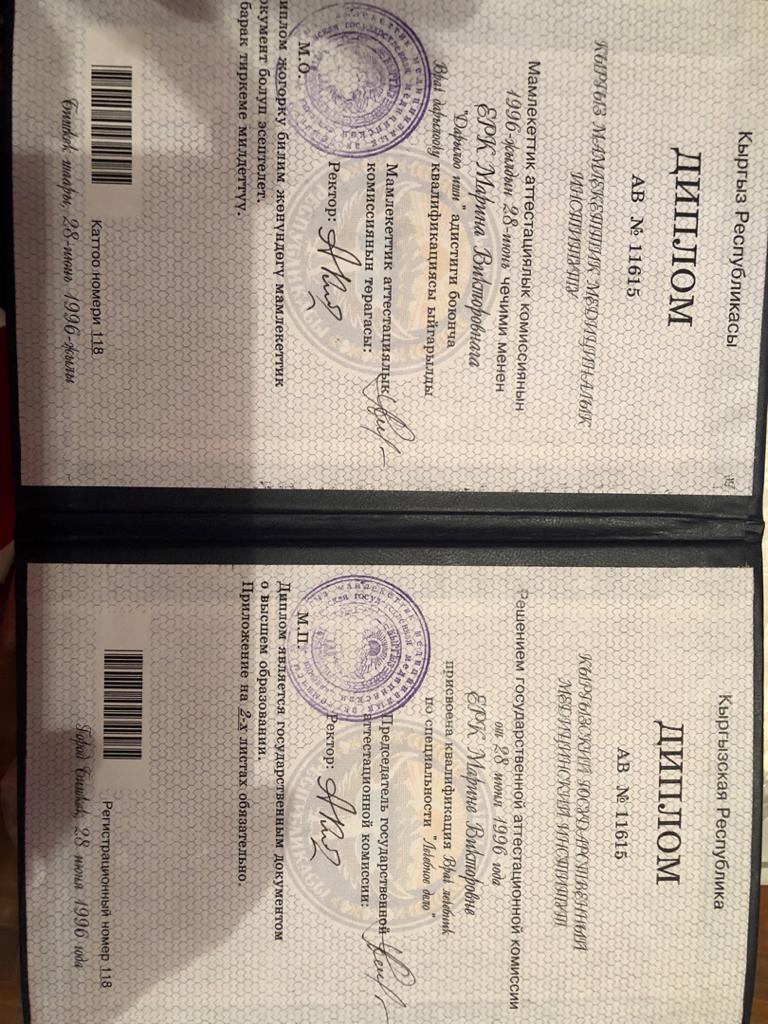 Кыргыз Республикасы
ДИПЛОМ
АВ № 11615
КЫРГЫЗ МАМЛЕКЕТТИК МЕДИЦИНАЛЫК
ИНСТИТУТУ
Мамлекеттик аттестациялык комиссиянын
1996-жылдын 28-июнь чечими менен
ЕРК Марина Викторовнага
"Дарылоо иши" адистиги боюнча
Врач дарылоочу квалификациясы ыйгарылды
Мамлекеттик аттестациялык
комиссиянын төрагасы:
Ректор:
М.О.
иплом жогорку билим жөнүндөгү мамлекеттик
окумент болуп эсептелет.
барак тиркеме милдеттүү.
Каттоо номери 118
Бишкек шаары, 28-июнь 1996-жылы
Кыргызская Республика
ДИПЛОМ
АВ № 11615
КЫРГЫЗСКИЙ ГОСУДАРСТВЕННЫЙ
МЕДИЦИНСКИЙ ИНСТИТУТ
Решением государственной аттестационной комиссии
от 28 июня 1996 года
ЕРК Марине Викторовне
присвоена квалификация Врач лечебник
по специальности "Лечебное дело"
Председатель государственной
аттестационной комиссии:
Ректор:
М.П.
Диплом является государственным документом
о высшем образовании.
Приложение на 2-х листах обязательно.
Регистрационный номер 118
Город Бишкек, 28 июня 1996 года